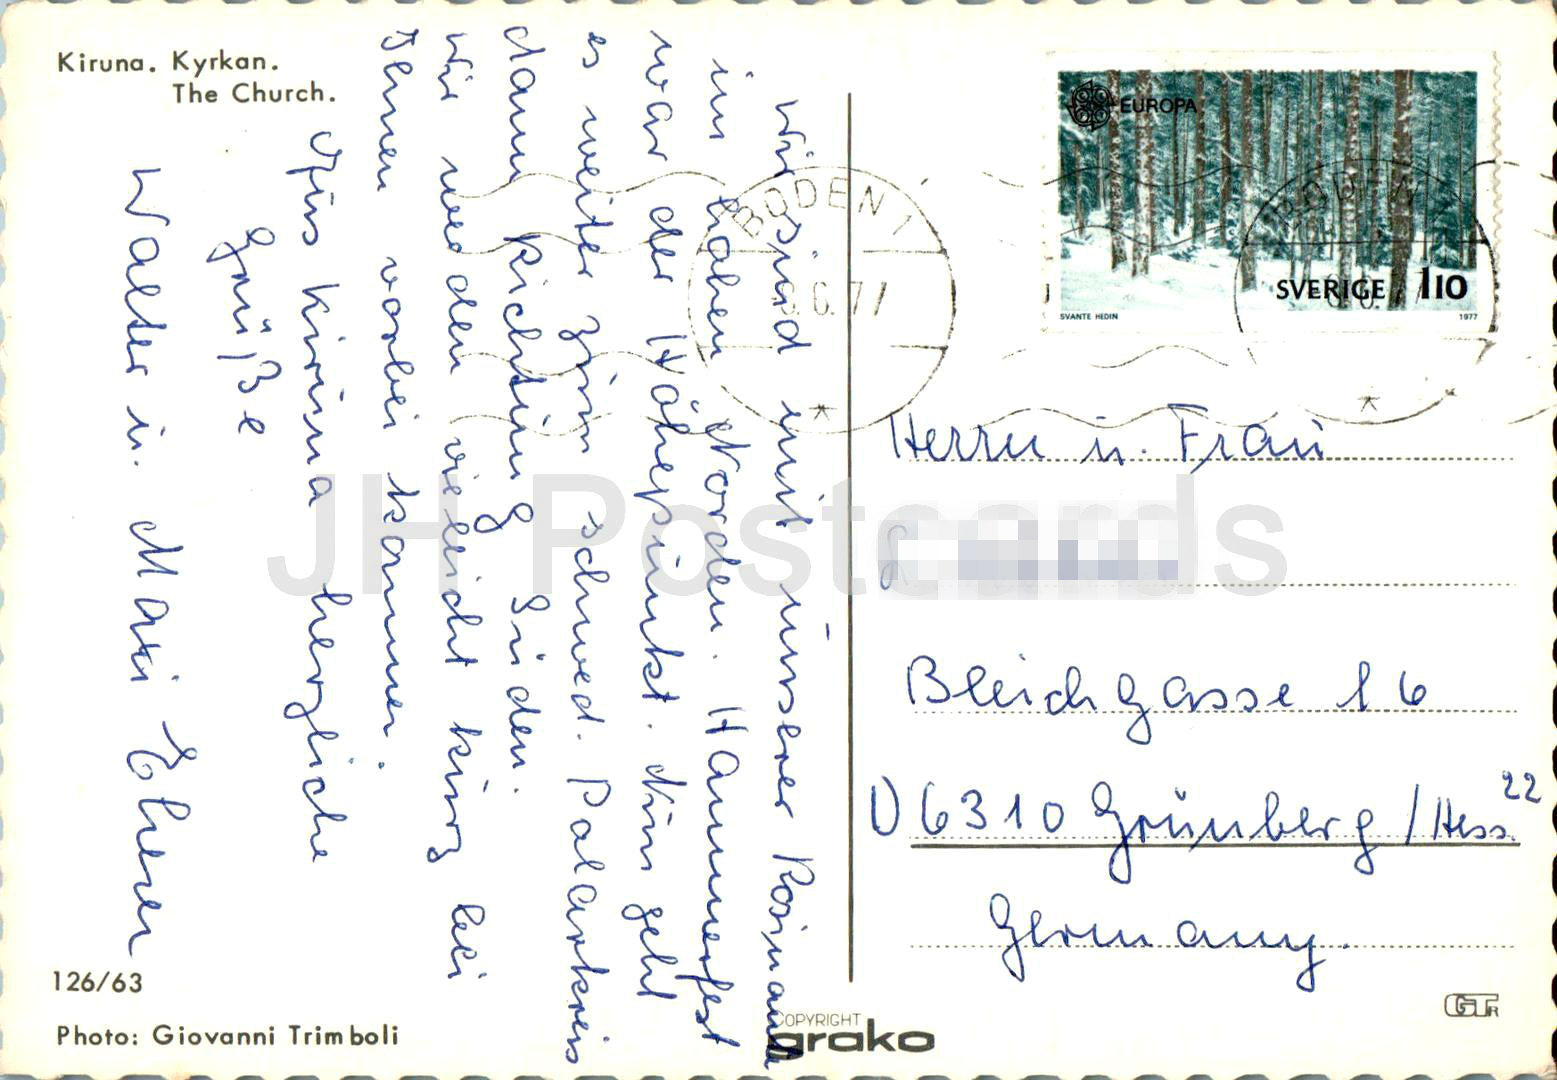 Kiruna. Kyrkan.
The Church.
Wir sind mit unserer Rosimante
im hohen Norden. Hammerfest
war der Höhepunkt. Nun geht
es weiter zum schwed. Polarkreis
dann Richtung Süden.
Wir werden vielleicht kurz bei
Ihnen vorbei kommen.
Aus Kiruna herzliche
Grüße
Walter u. Maxi
126/63
Photo: Giovanni Trimboli
COPYRIGHT
grako
EUROPA
SVERIGE 110
SVANTE HEDIN
1977
BODEN 1
6.77
BODEN
Herrn u. Frau
Bleichgasse 16
D 6310 Grünberg / Hess. 22
Germany.
JH Postcards